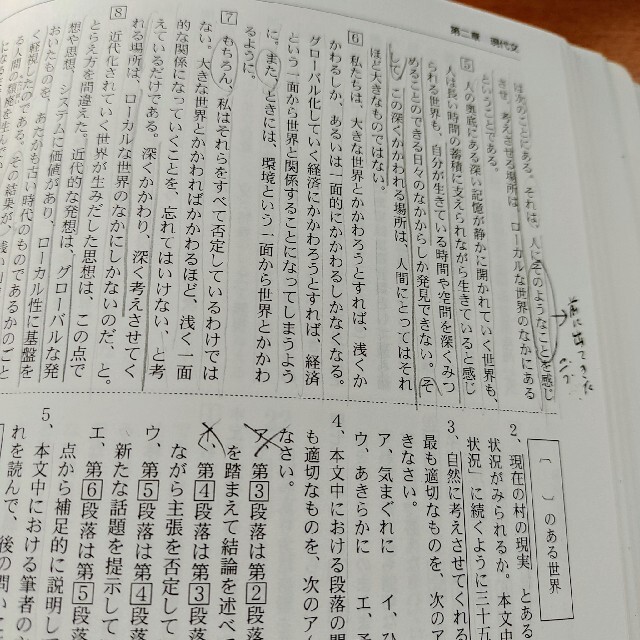 第二章　現代文
は次のことにある。それは、人にそのようなことを感じ
させ、考えさせる場所は、ローカルな世界のなかにある
ということである。
5　人の奥底にある深い記憶が静かに開かれていく世界も、
人は長い時間の蓄積に支えられながら生きていると感じ
られる世界も、自分が生きている時間や空間を深くみつ
めることのできる日々のなかからしか発見できない。（そ
して）この深くかかわれる場所は、人間にとってはそれ
ほど大きなものではない。
6　私たちは、大きな世界とかかわろうとすれば、浅くか
かわるしか、あるいは一面的にかかわるしかなくなる。
グローバル化していく経済にかかわろうとすれば、経済
という一面から世界と関係することになってしまうよう
に。また、ときには、環境という一面から世界とかかわ
るように。
7　もちろん、私はそれらをすべて否定しているわけでは
ない。大きな世界とかかわればかかわるほど、浅く一面
的な関係になっていくことを、忘れてはいけない、と考
えているだけである。深くかかわり、深く考えさせてく
れる場所は、ローカルな世界のなかにしかないのだ、と。
8　近代化されていく世界が生みだした思想は、この点で
とらえ方を間違えた。近代的な発想は、グローバルな発
想や思想、システムに価値があり、ローカル性に基盤を
おいたものを、あたかも古い時代のものであるかのごと
く軽視したのである。その結果が、浅い
る人間の
前に出てきた
〔　〕のある世界
2、現在の村の現実　とある
状況がみられるか。本文中
状況」に続くように三十
3、自然に考えさせてくれる
最も適切なものを、次のア
ア、気まぐれに　イ、ひ
ウ、あきらかに　エ、
4、本文中における段落の関
も適切なものを、次のア
なさい。
ア、第3段落は第2段
を踏まえて結論を述べ
イ、第4段落は第3段
ながら主張を否定して
ウ、第5段落は第4段
新たな話題を提示して
エ、第6段落は第5段
点から補足的に説明し
5、本文中における筆者の
れを読んで、後の問い